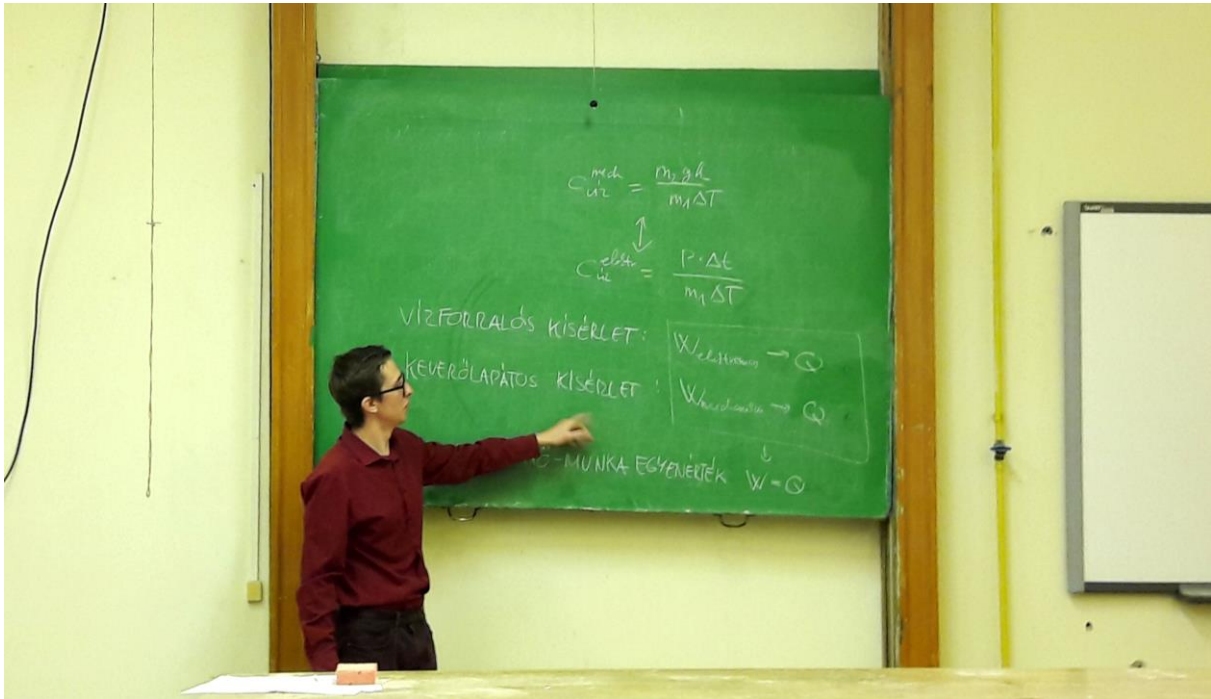 C víz mech = m₂gh / m₁ΔT
↕
C víz elektr = P·Δt / m₁ΔT
VÍZFORRALÓS KÍSÉRLET: W elektromos → Q
KEVERŐLAPÁTOS KÍSÉRLET: W mechanikai → Q
↓
HŐ-MUNKA EGYENÉRTÉK W = Q